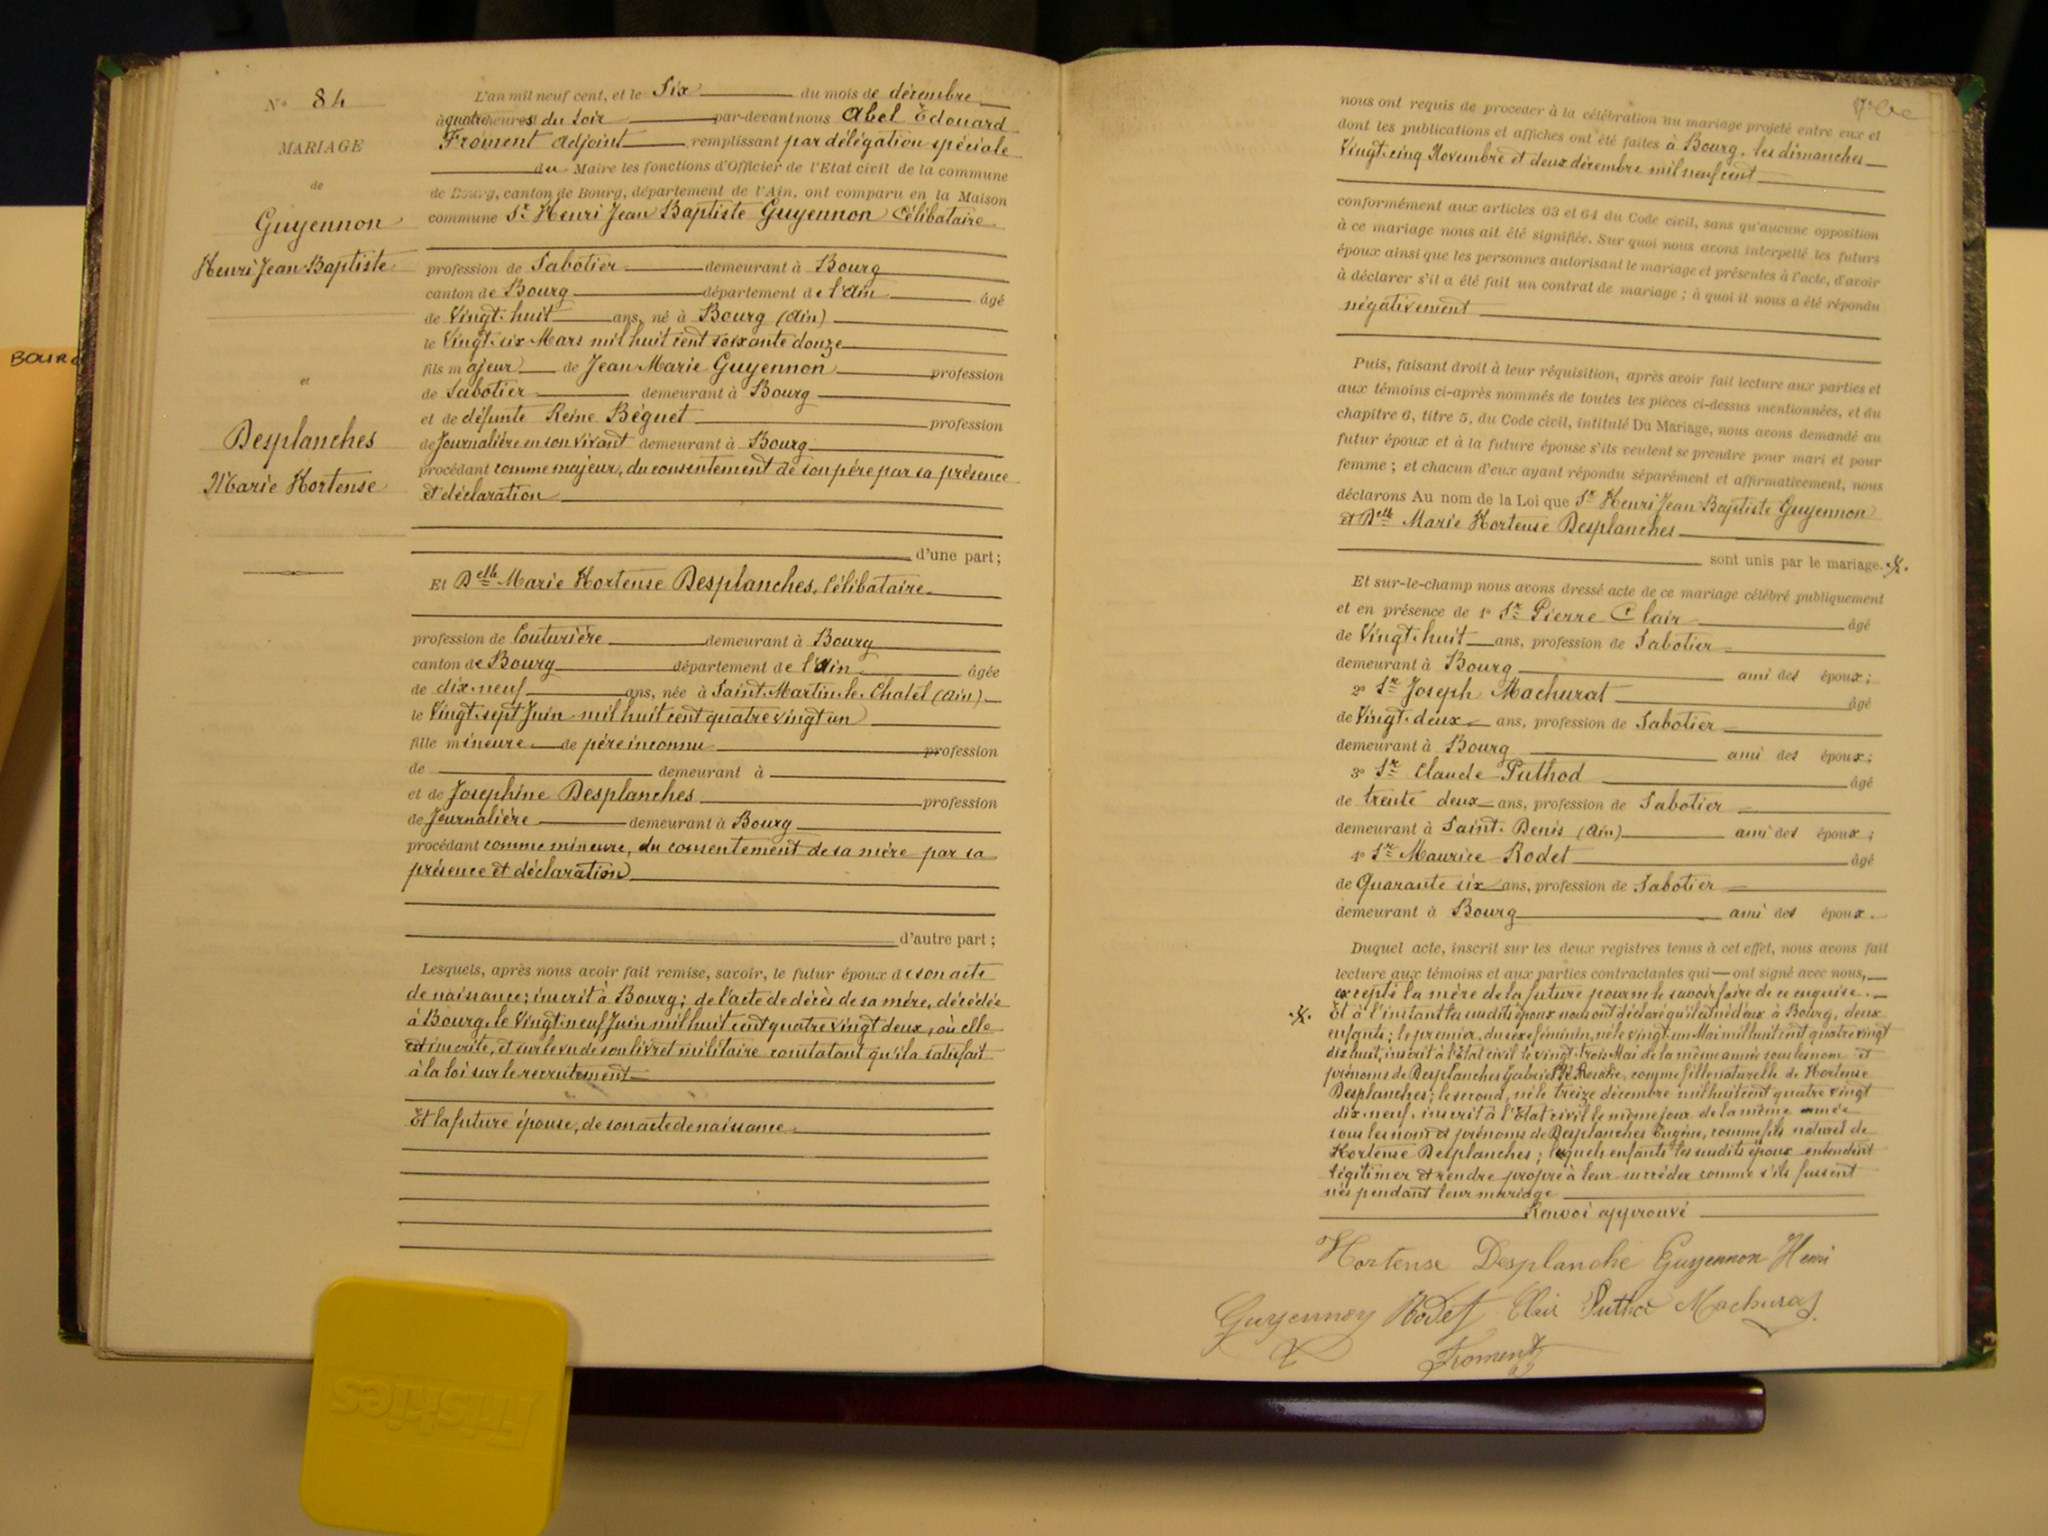 BOURG
N° 84
MARIAGE
de
Guyennon
Henri Jean Baptiste
et
Desplanches
Marie Hortense
L'an mil neuf cent, et le Six du mois de décembre
à quatre heures du soir par-devant nous Abel Edouard
Froment Adjoint remplissant par délégation spéciale
du Maire les fonctions d'Officier de l'Etat civil de la commune
de Bourg, canton de Bourg, département de l'Ain, ont comparu en la Maison
commune Sr Henri Jean Baptiste Guyennon Célibataire
profession de Sabotier demeurant à Bourg
canton de Bourg département de l'Ain âgé
de Vingt-huit ans, né à Bourg (Ain)
le Vingt-six Mars mil huit cent soixante douze
fils majeur de Jean Marie Guyennon profession
de Sabotier demeurant à Bourg
et de défunte Reine Béguet profession
de Journalière en son vivant demeurant à Bourg
procédant comme majeur, du consentement de son père par sa présence
et déclaration
d'une part;
Et Delle Marie Hortense Desplanches, Célibataire
profession de Couturière demeurant à Bourg
canton de Bourg département de l'Ain âgée
de dix-neuf ans, née à Saint-Martin-le-Chatel (Ain)
le Vingt-sept Juin mil huit cent quatre vingt un
fille mineure de père inconnu profession
de demeurant à
et de Josephine Desplanches profession
de Journalière demeurant à Bourg
procédant comme mineure, du consentement de sa mère par sa
présence et déclaration
d'autre part;
Lesquels, après nous avoir fait remise, savoir, le futur époux de son acte
de naissance; inscrit à Bourg; de l'acte de décès de sa mère, décédée
à Bourg, le Vingt-neuf Juin mil huit cent quatre vingt deux, où elle
est inscrite, et sur le vu de son livret militaire constatant qu'il a satisfait
à la loi sur le recrutement
Et la future épouse, de son acte de naissance
nous ont requis de procéder à la célébration du mariage projeté entre eux et
dont les publications et affiches ont été faites à Bourg, les dimanches
Vingt-cinq Novembre et deux décembre mil neuf cent
conformément aux articles 63 et 64 du Code civil, sans qu'aucune opposition
à ce mariage nous ait été signifiée. Sur quoi nous avons interpellé les futurs
époux ainsi que les personnes autorisant le mariage et présentes à l'acte, d'avoir
à déclarer s'il a été fait un contrat de mariage; à quoi il nous a été répondu
négativement
Puis, faisant droit à leur réquisition, après avoir fait lecture aux parties et
aux témoins ci-après nommés de toutes les pièces ci-dessus mentionnées, et du
chapitre 6, titre 5, du Code civil, intitulé Du Mariage, nous avons demandé au
futur époux et à la future épouse s'ils veulent se prendre pour mari et pour
femme; et chacun d'eux ayant répondu séparément et affirmativement, nous
déclarons Au nom de la Loi que Sr Henri Jean Baptiste Guyennon
et Delle Marie Hortense Desplanches
sont unis par le mariage.
Et sur-le-champ nous avons dressé acte de ce mariage célébré publiquement
et en présence de 1° Sr Pierre Clair âgé
de Vingt-huit ans, profession de Sabotier
demeurant à Bourg ami des époux;
2° Sr Joseph Machurat âgé
de Vingt-deux ans, profession de Sabotier
demeurant à Bourg ami des époux;
3° Sr Claude Puthod âgé
de trente deux ans, profession de Sabotier
demeurant à Saint-Denis (Ain) ami des époux;
4° Sr Maurice Rodet âgé
de Quarante six ans, profession de Sabotier
demeurant à Bourg ami des époux.
Duquel acte, inscrit sur les deux registres tenus à cet effet, nous avons fait
lecture aux témoins et aux parties contractantes qui ont signé avec nous,
excepté la mère de la future pour ne le savoir faire de ce enquise.
Et à l'instant les susdits époux nous ont déclaré qu'il est né d'eux à Bourg, deux
enfants; le premier, du sexe féminin, né le vingt-un Mai mil huit cent quatre vingt
dix huit, inscrit à l'Etat civil le vingt-trois Mai de la même année sous les nom et
prénoms de Desplanches Gabrielle Rosalie, comme fille naturelle de Hortense
Desplanches; le second, né le treize décembre mil huit cent quatre vingt
dix-neuf, inscrit à l'Etat civil le même jour de la même année
sous les nom et prénoms de Desplanches Eugène, comme fils naturel de
Hortense Desplanches; lesquels enfants les susdits époux entendent
légitimer et rendre propre à leur succéder comme s'ils fussent
nés pendant leur mariage
Renvoi approuvé
Hortense Desplanche Guyennon Henri
Guyennon Rodet Clair Puthod Machurat
Froment
Friskies